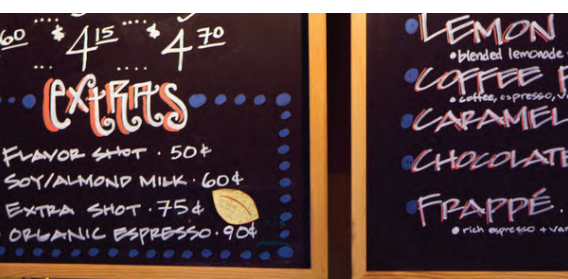 60 $4 15 $4 70
extras
FLAVOR SHOT · 50¢
SOY/ALMOND MILK · 60¢
EXTRA SHOT · 75¢
ORGANIC ESPRESSO · 90¢
LEMON
• blended lemonade
COFFEE F
• coffee, espresso, v
CARAMEL
CHOCOLATE
FRAPPÉ.
• rich espresso + van